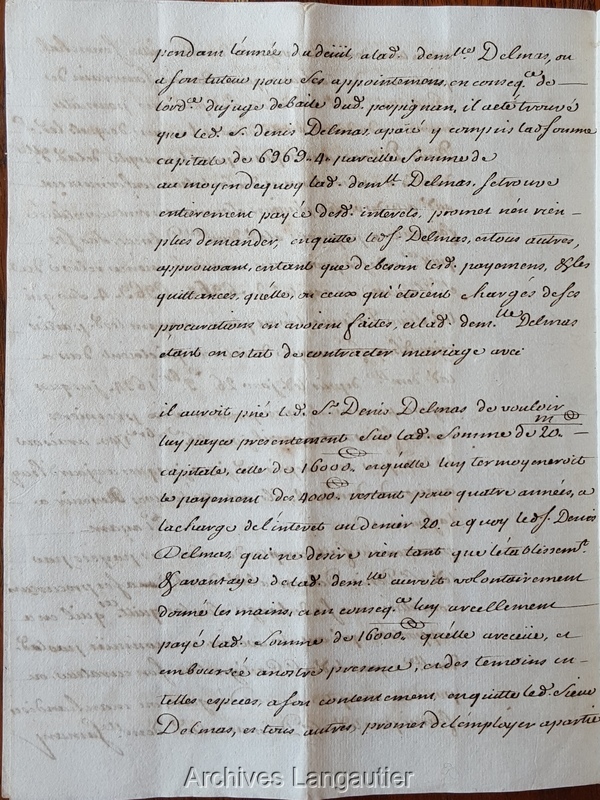 pendant l'année du deüil, a lad. dem.lle Delmas, ou
a son tuteur pour ses appointemens, en conseq.ce de
l'ord.ce du juge de baile dud. perpignan, il a eté trouvé
que led. S. denis Delmas, a payé y compris lad. somme
capitale de 6969.. 4. pareille somme de
au moyen de quoy lad. dem.lle Delmas, se trouve
entierement payée desd. interets, promet n'en rien
plus demander, en quitte led. S. Delmas, et tous autres,
approuvant, en tant que de besoin lesd. payemens, & les
quittances, qu'elle, ou ceux qui étoient chargés de ses
procurations en avoient faites, et lad. dem.lle Delmas
étant en estat de contracter mariage avec
il auroit prié led. S.r Denis Delmas de vouloir
luy payer presentement sur lad. somme de 20.m
capitale, celle de 16000. et qu'elle luy termoyeneroit
le payement des 4000. restant pour quatre années, a
la charge de l'interet au denier 20. a quoy led. S. Denis
Delmas, qui ne desire rien tant que l'etablissem.t
& avantage de lad. dem.lle auroit volontairement
donné les mains, et en conseq.ce luy a reellement
payé lad. somme de 16000. qu'elle a receüe, et
emboursée a nostre presence, et des temoins en
telles especes, a son contentement, en quitte led. Sieur
Delmas, et tous autres, promet de l'employer a partie
Archives Langautier